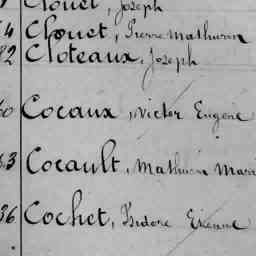 Clouet, Joseph
4 Clouet, Pierre Mathurin
82 Cloteaux, Joseph
60 Cocaux, Victor Eugène
3 Cocault, Mathurin Mari
36 Cochet, Isidore Etienne